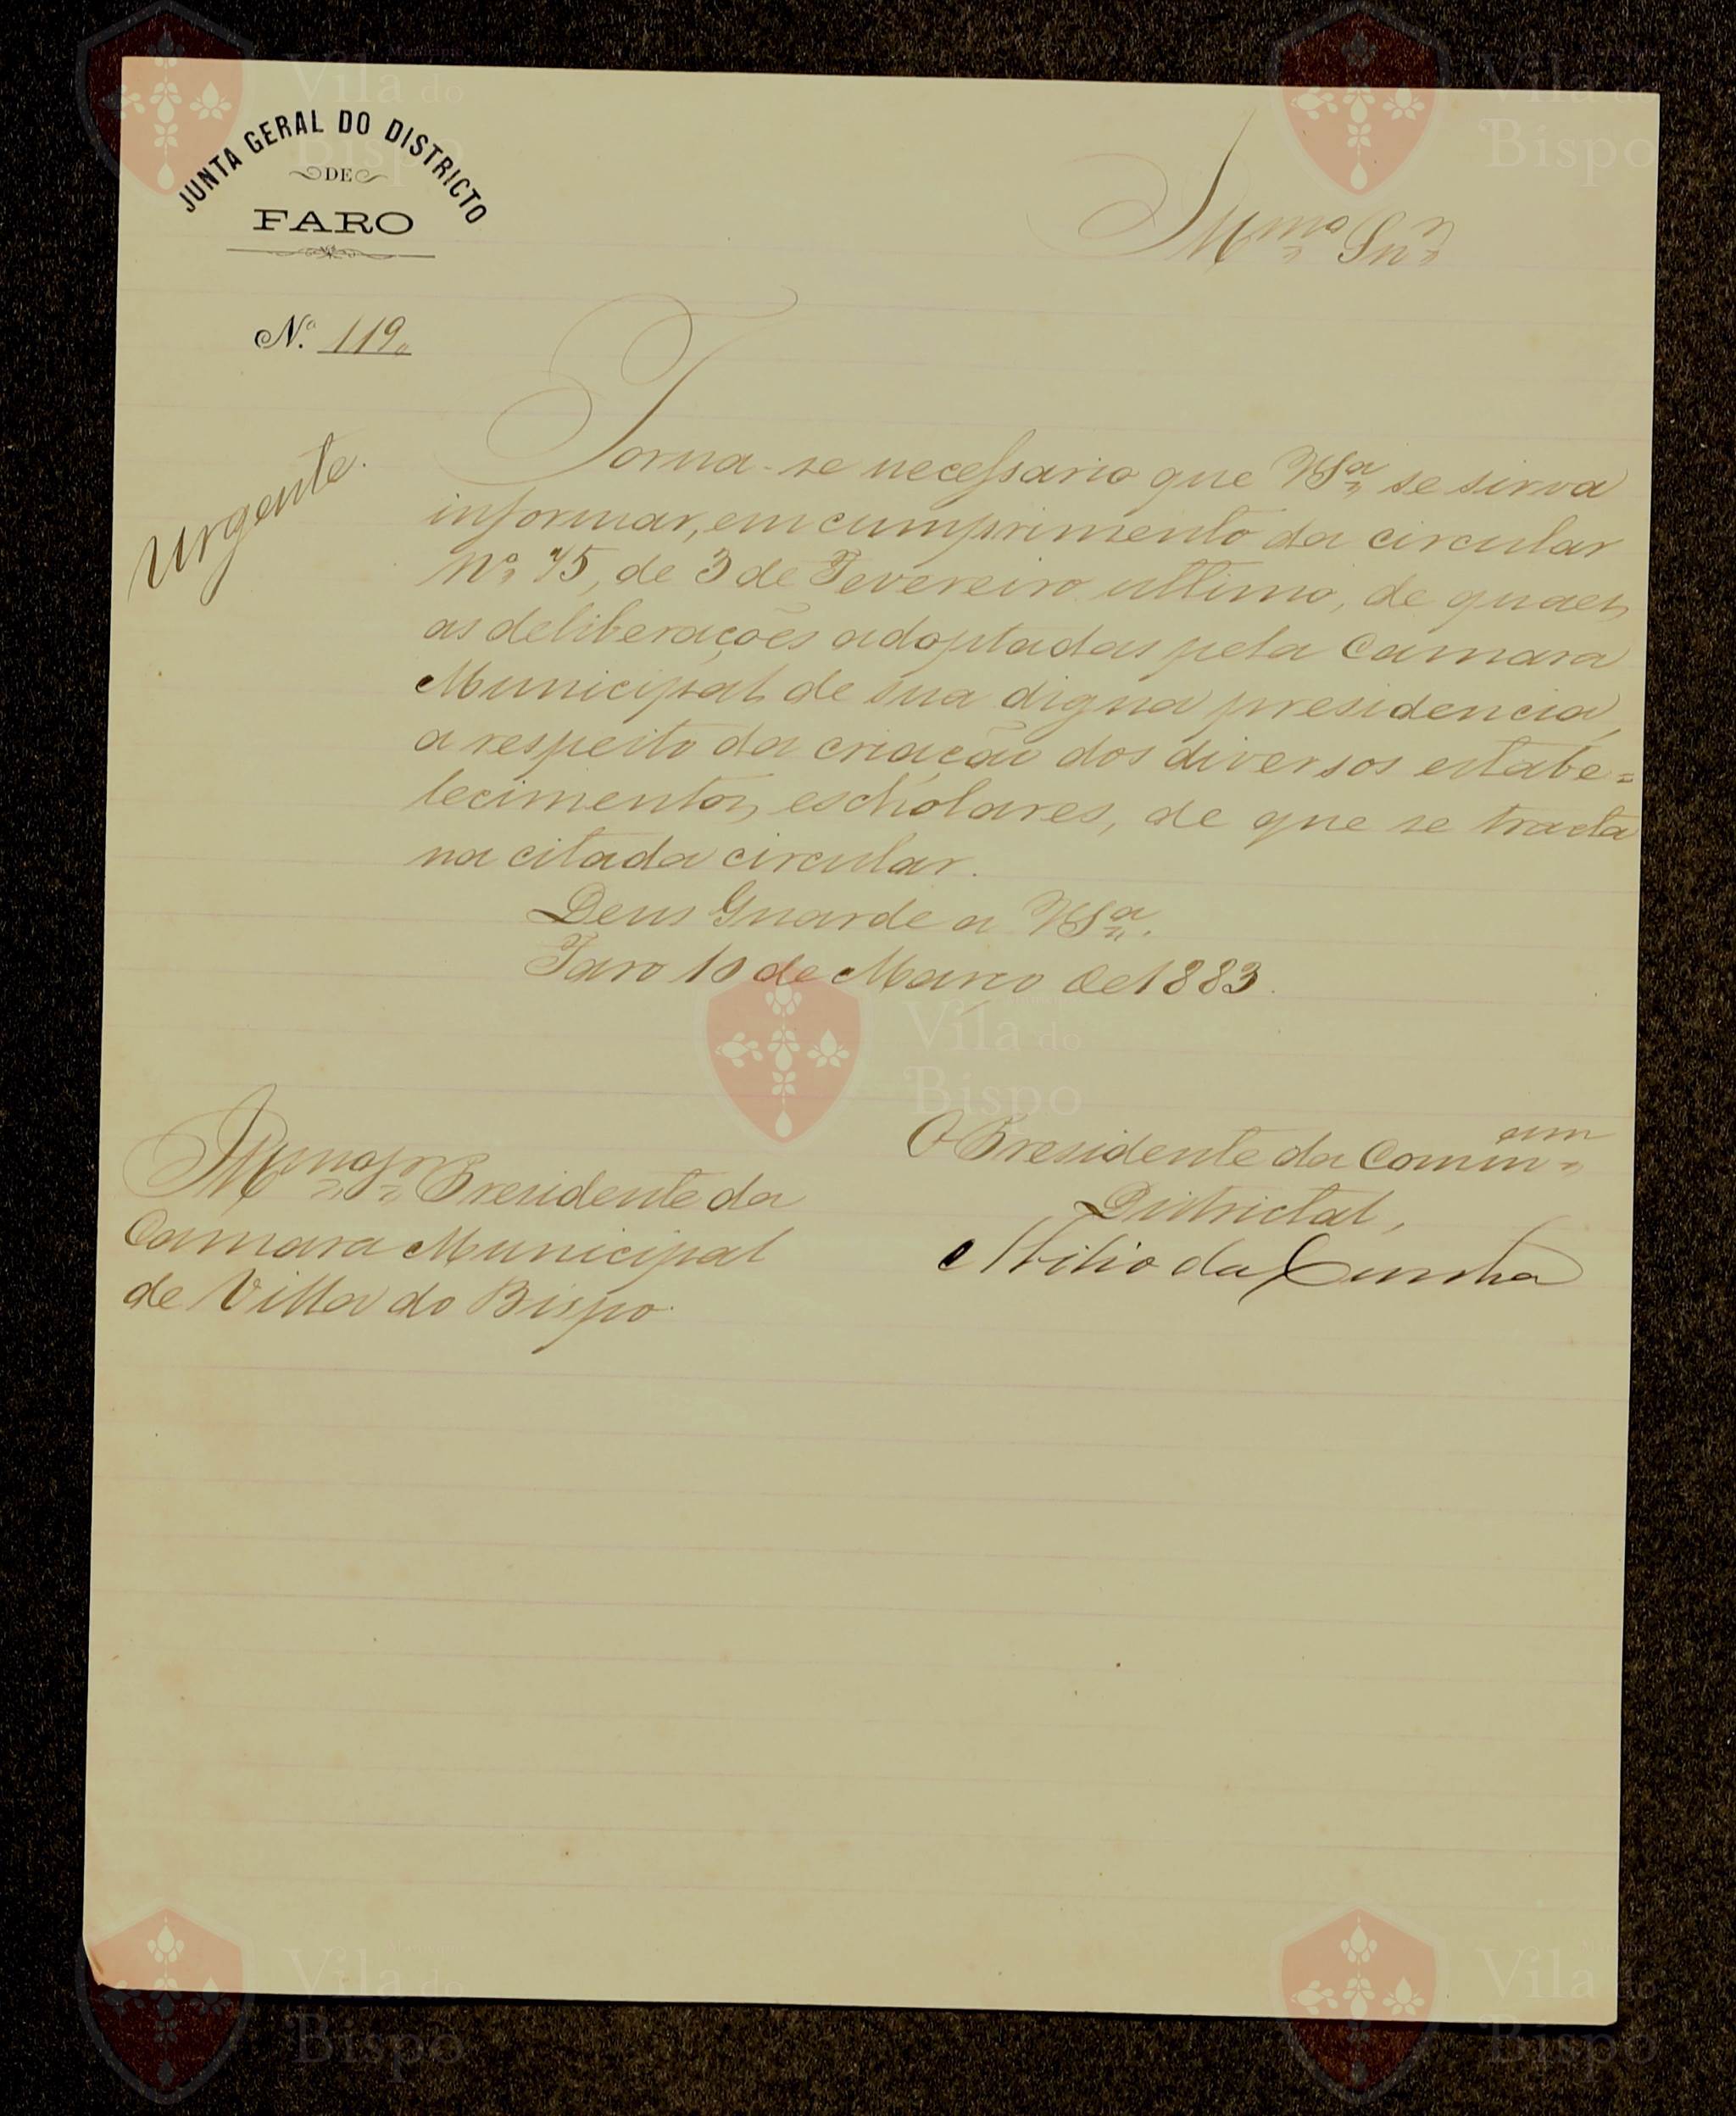 JUNTA GERAL DO DISTRICTO
DE
FARO
Nº 119
Illmo Snr
Urgente.
Torna-se necessario que VSª se sirva
informar, em cumprimento da circular
Nº 45, de 3 de Fevereiro ultimo, de quaes
as deliberações adoptadas pela Camara
Municipal de sua digna presidencia,
a respeito da criação dos diversos estabe=
lecimentos escholares, de que se tracta
na citada circular.
Deus Guarde a VSª.
Faro 10 de Março de 1883.
O Presidente da Commam
Districtal,
Abilio da Cunha
Illmo Sr Presidente da
Camara Municipal
de Villa do Bispo.
Vila do
Bispo